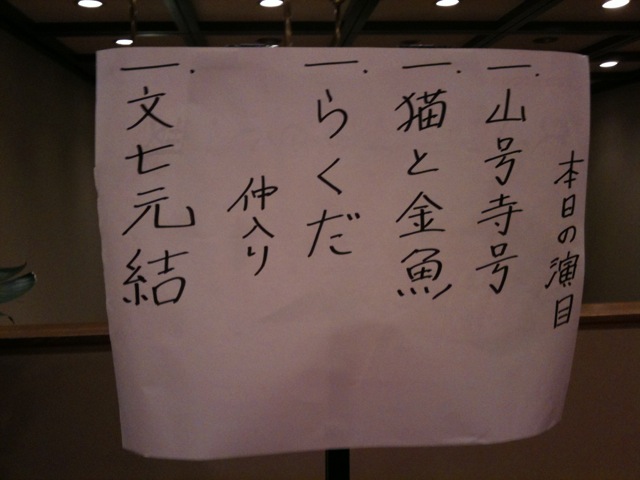 本日の演目
一.山号寺号
一.猫と金魚
一.らくだ
仲入り
一.文七元結